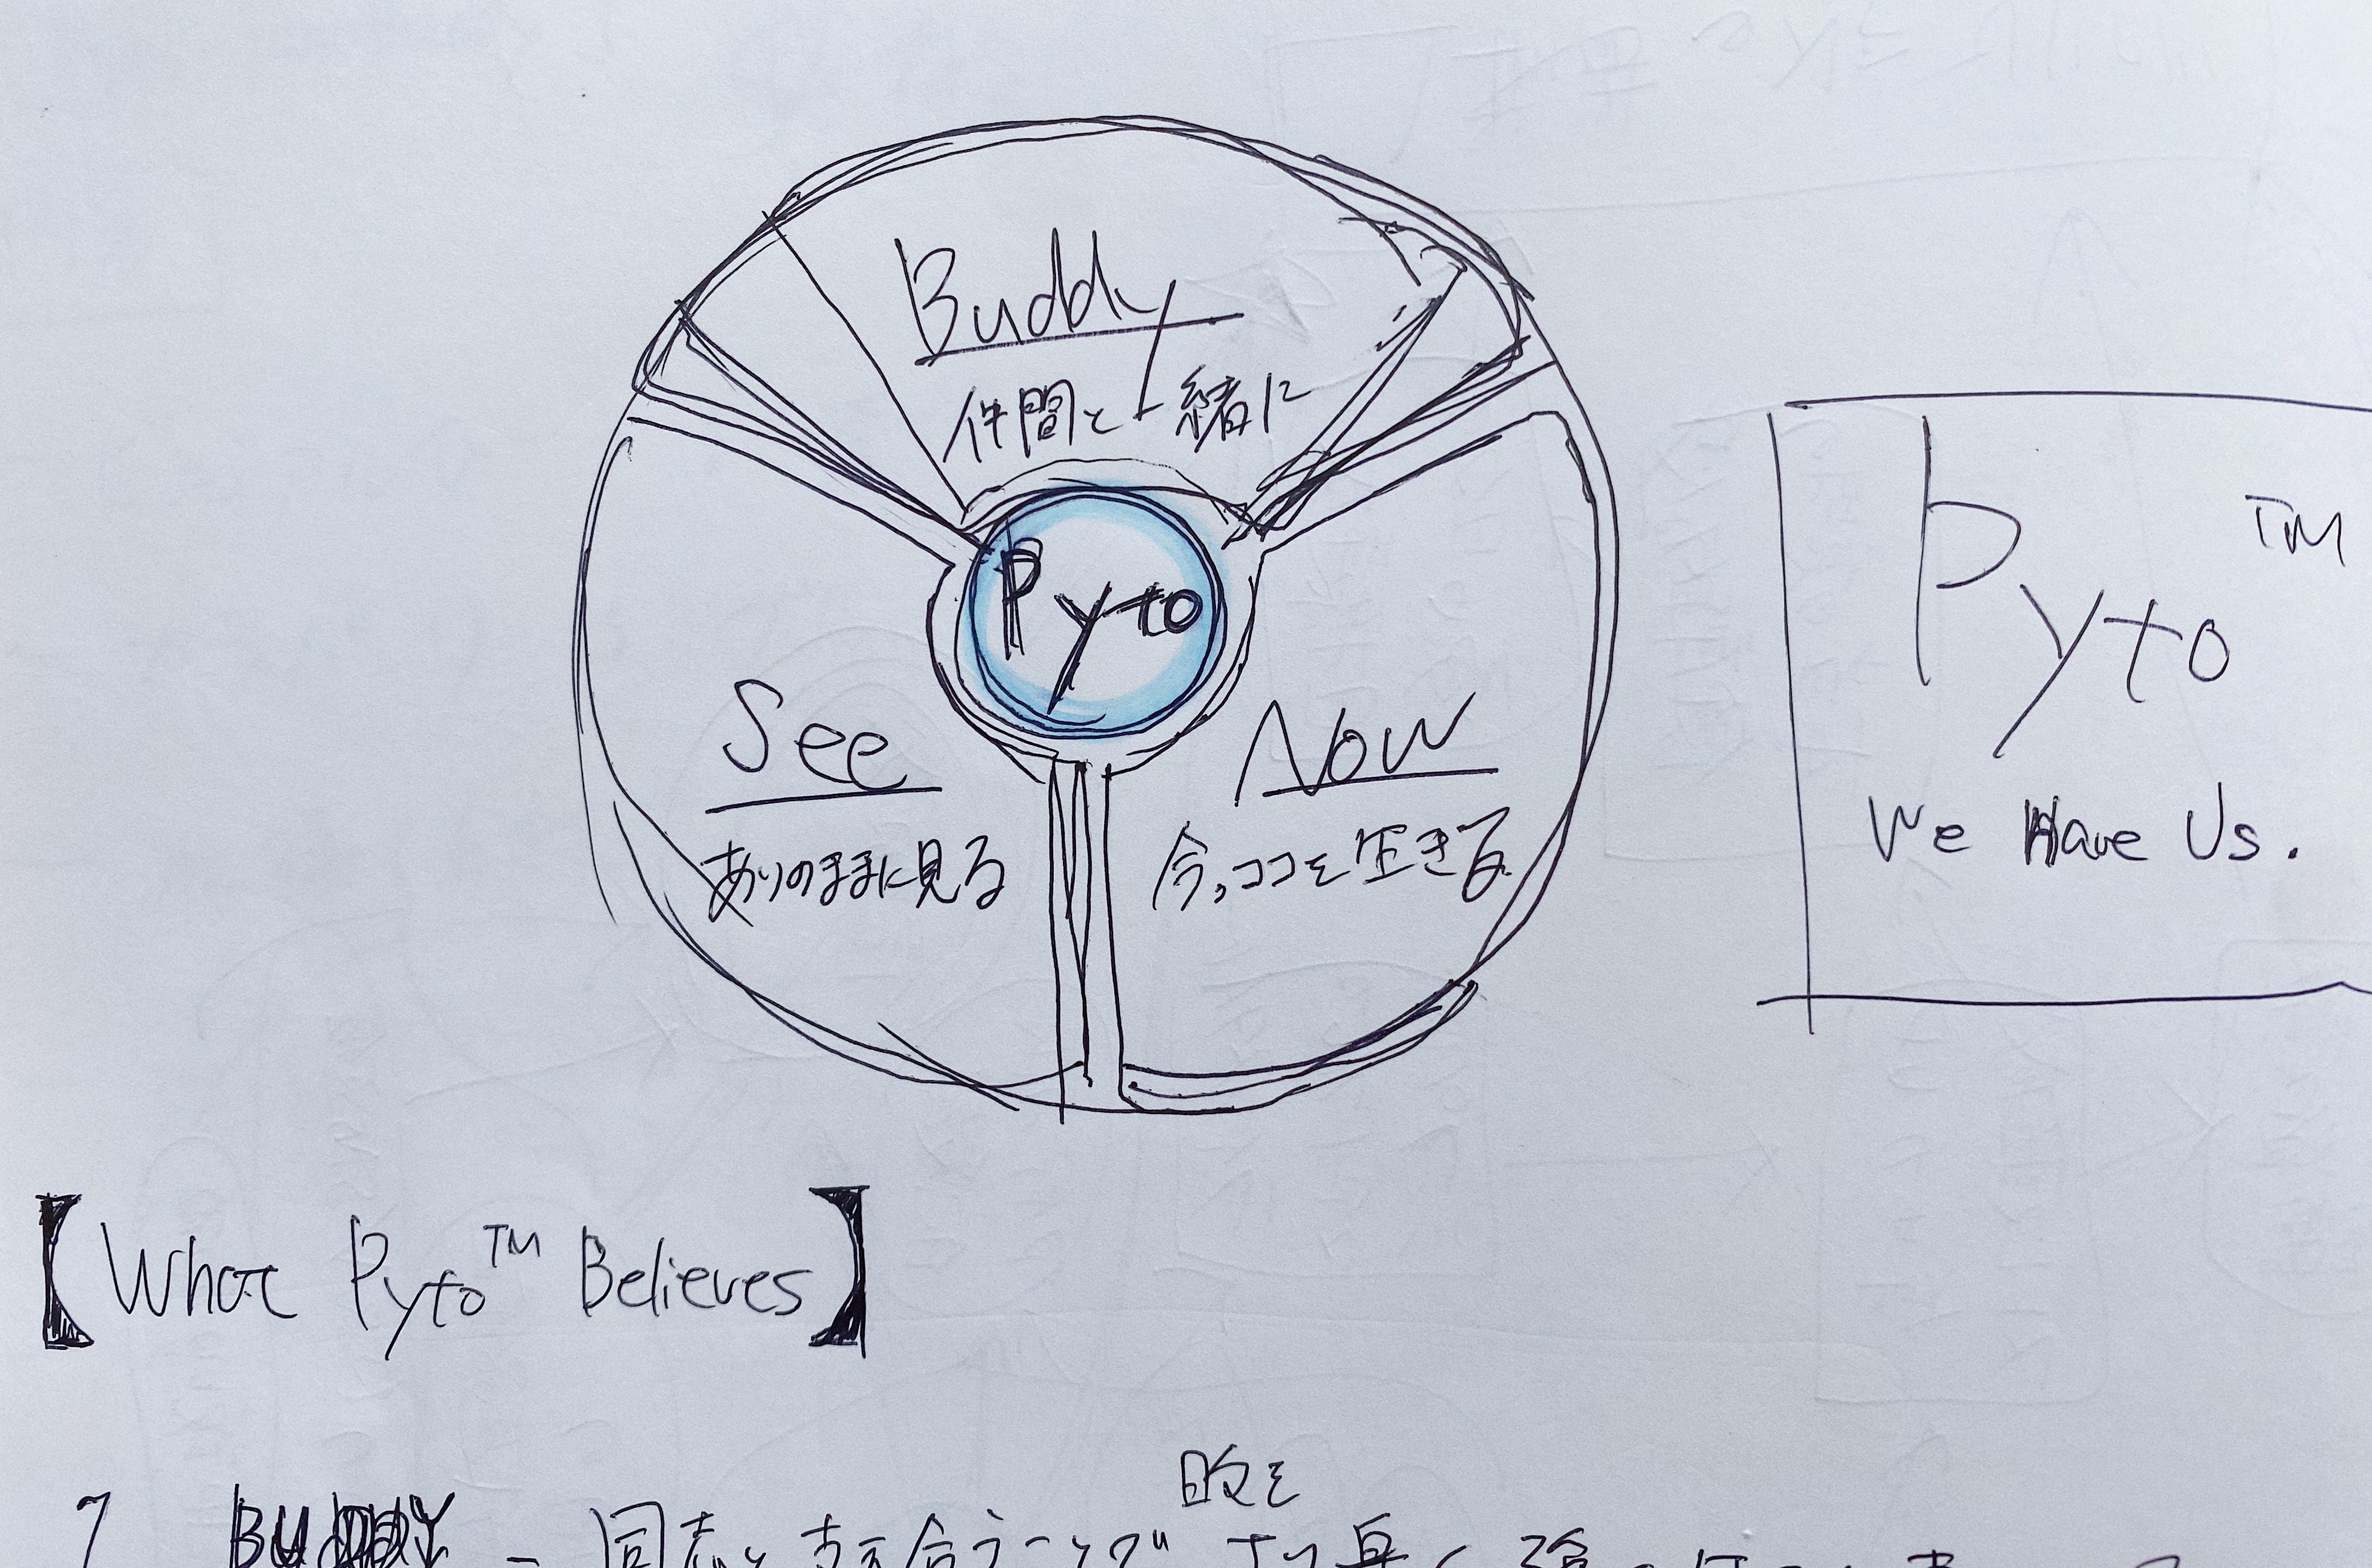 Buddy
仲間と一緒に
Pyto
See
ありのままに見る
Now
今、ココを生きる
Pyto TM
We Have Us.
【What Pyto TM Believes】
BUDDY - 同志と支え合うことで